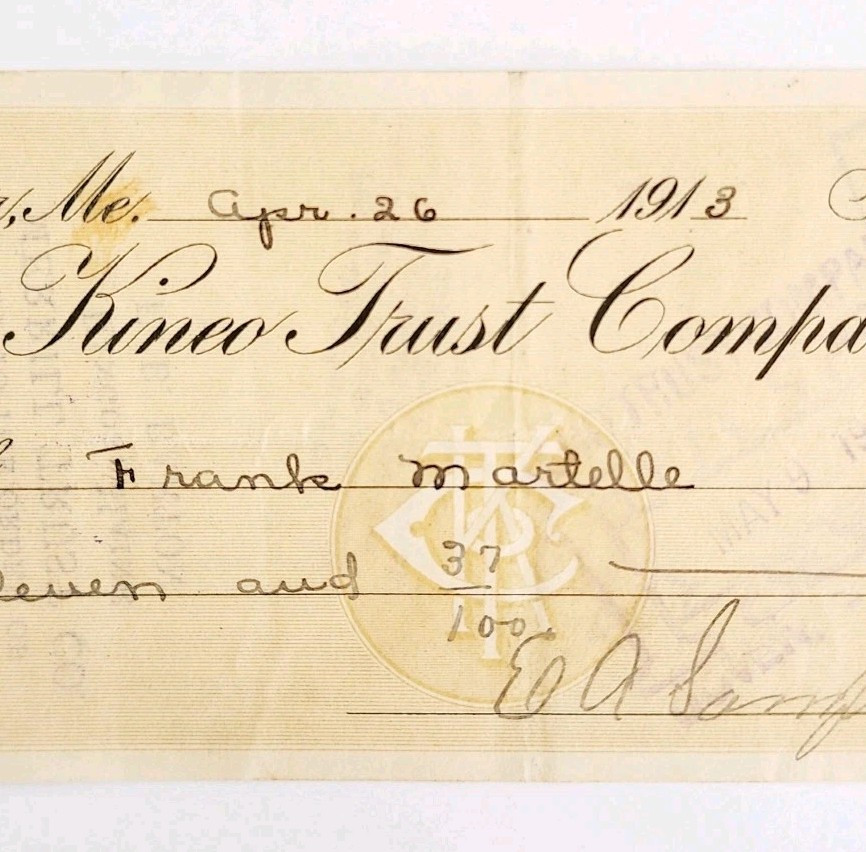 Me. Apr. 26 1913
Kineo Trust Compa
Frank Martelle
leven and 37/100
E A Samp
MAY 9